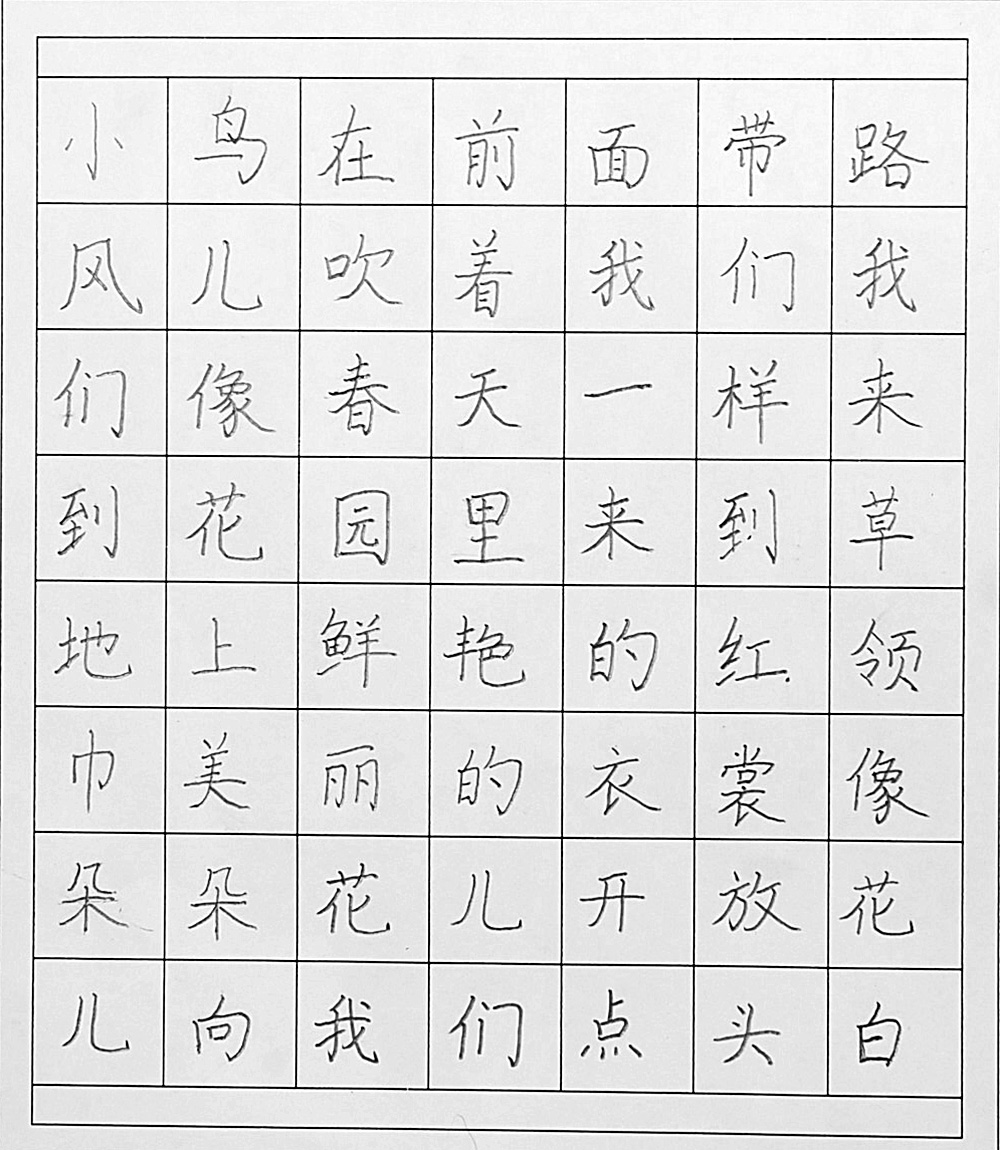 小鸟在前面带路
风儿吹着我们我
们像春天一样来
到花园里来到草
地上鲜艳的红领
巾美丽的衣裳像
朵朵花儿开放花
儿向我们点头白